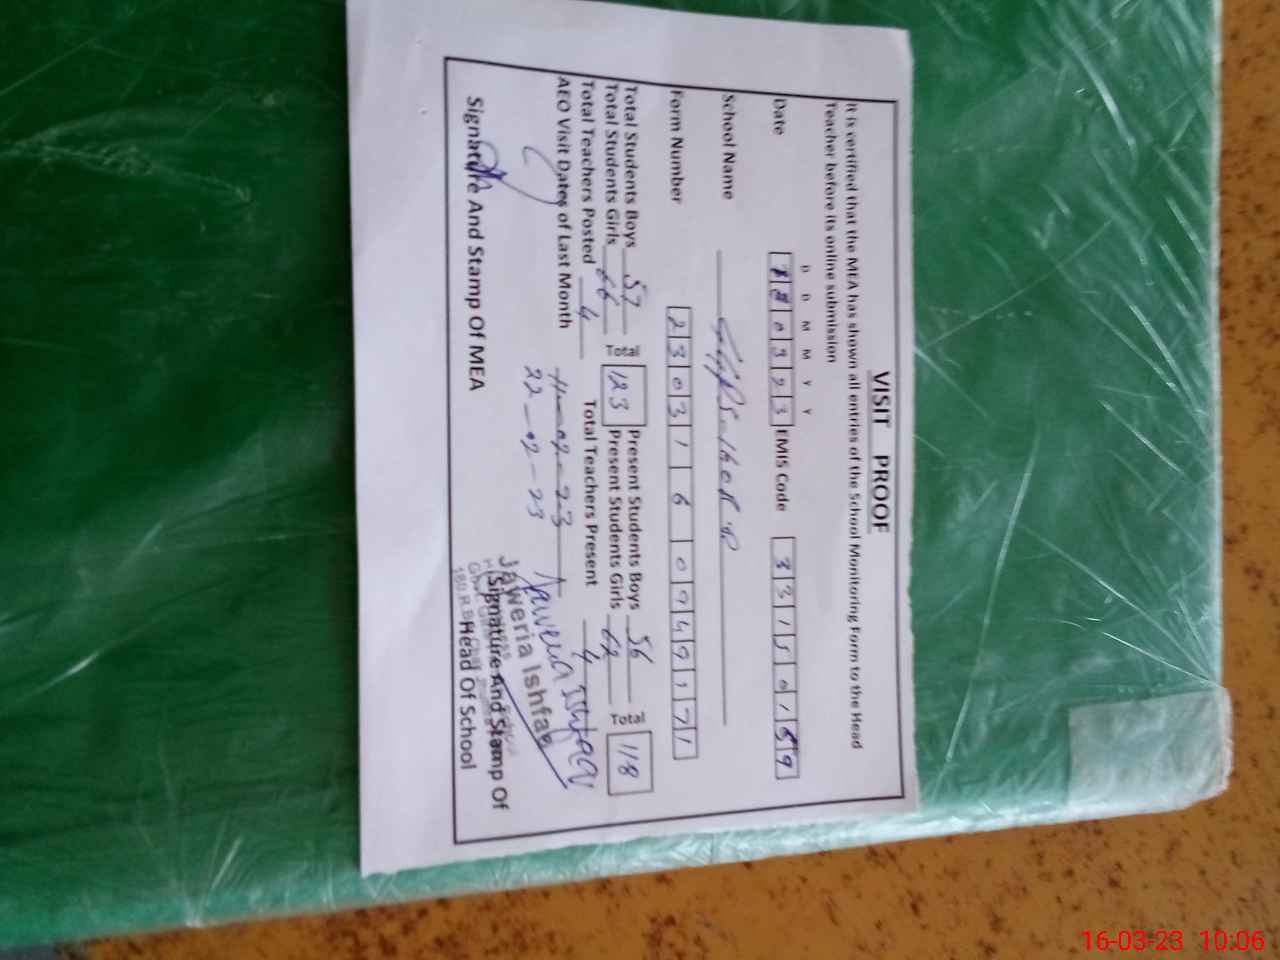 VISIT PROOF
It is certified that the MEA has shown all entries of the School Monitoring Form to the Head
Teacher before its online submission
D D M M Y Y
Date 0 3 2 3 EMIS Code 3 3 1 5 0 1 9
School Name
Form Number 2 3 0 3 1 6 0 9 4 9 1 7 1
Total Students Boys 57 Total 123 Present Students Boys 56 Total 118
Total Students Girls 66 Present Students Girls 62
Total Teachers Posted 4 Total Teachers Present 4
AEO Visit Dates of Last Month
22-02-23
Jaweria Ishfaq
Signature And Stamp Of MEA
Signature And Stamp Of
Head Of School
16-03-23 10:06